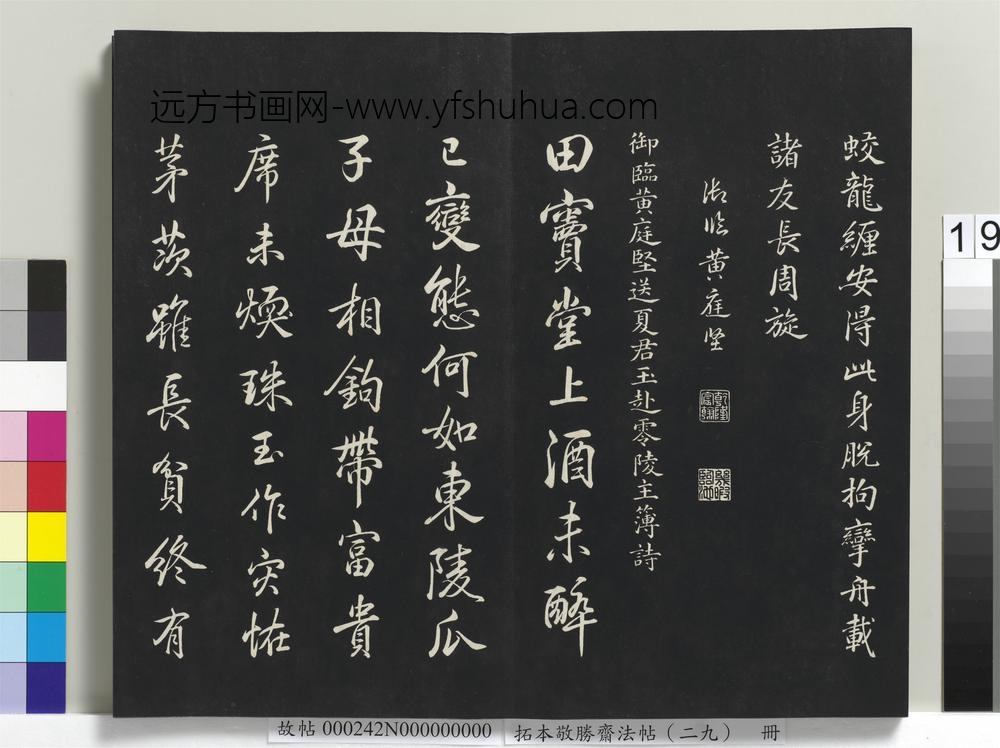 远方书画网-www.yfshuhua.com
蛟龍纏安得此身脫拘攣舟載
諸友長周旋
御臨黃庭堅
乾隆宸翰
御臨黃庭堅送夏君玉赴零陵主簿詩
田竇堂上酒未醉
已變態何如東陵瓜
子母相鉤帶富貴
席未煖珠玉作灾怪
茅茨雖長貧終有
19
故帖 000242N000000000
拓本敬勝齋法帖（二九） 冊